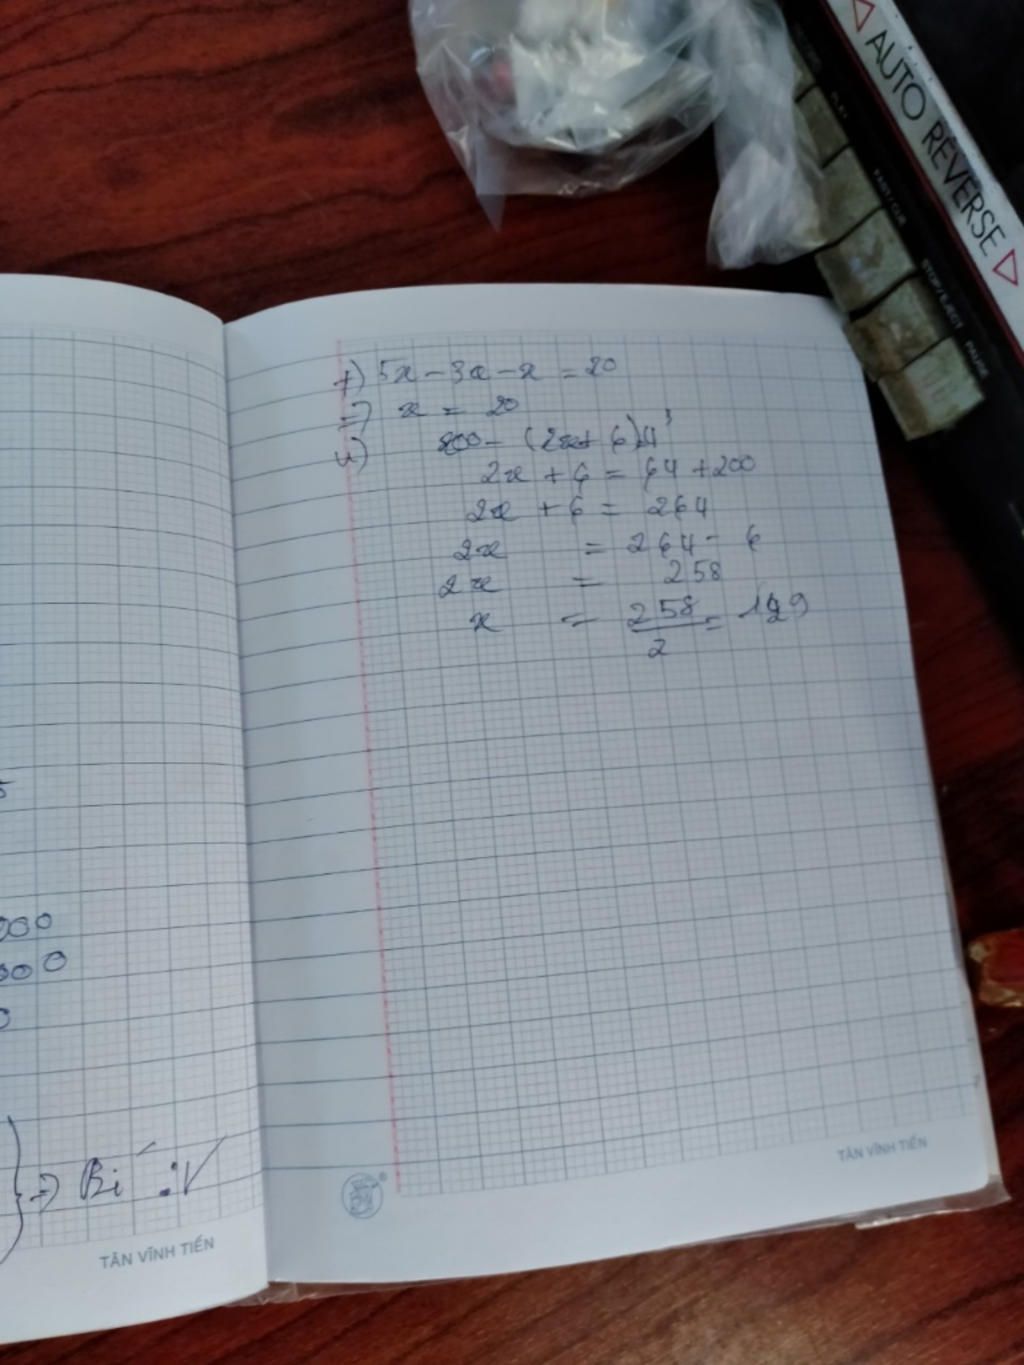 AUTO REVERSE
PLAY
STOP/EJECT
PAUSE
t) 5x - 3x - x = 20
=> x = 20
u) 200 - (2x + 6) 4³
2x + 6 = 64 + 200
2x + 6 = 264
2x = 264 - 6
2x = 258
x = 258/2 = 129
5
000
000
0
} => Bí :V
TÂN VĨNH TIẾN
TÂN VĨNH TIẾN